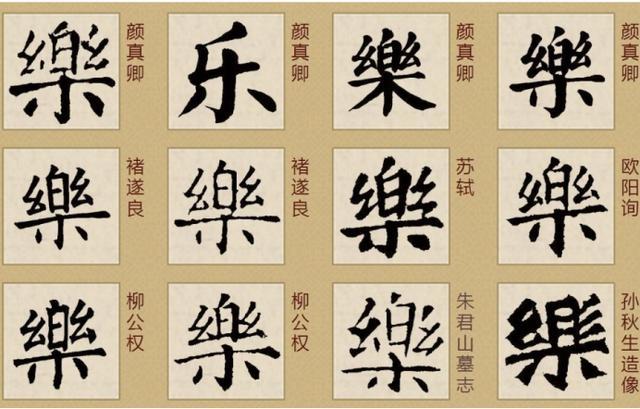 樂 颜真卿
乐 颜真卿
樂 颜真卿
樂 颜真卿
樂 褚遂良
樂 褚遂良
樂 苏轼
樂 欧阳询
樂 柳公权
樂 柳公权
樂 朱君山墓志
樂 孙秋生造像